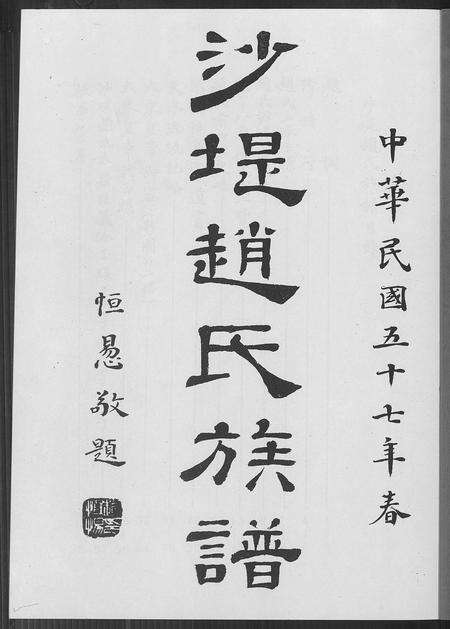 中華民國五十七年春
沙堤趙氏族譜
恒惖敬題